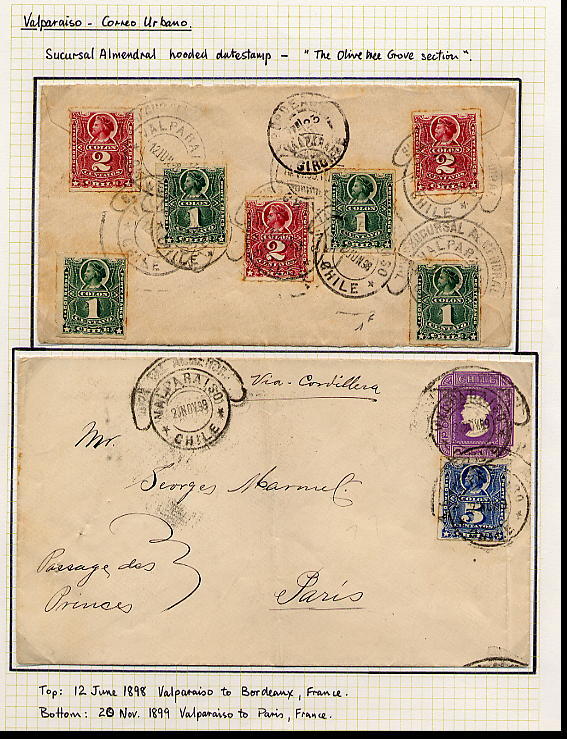 Valparaiso - Correo Urbano.
Sucursal Almendral hooded datestamp - "The Olive tree Grove section".
COLON
2
CENTAVOS
CHILE
COLON
1
CENTAVO
CHILE
COLON
2
CENTAVOS
CHILE
COLON
1
CENTAVO
CHILE
COLON
2
CENTAVOS
CHILE
COLON
1
CENTAVO
CHILE
COLON
1
CENTAVO
CHILE
VALPARAISO
CHILE
BORDEAUX
GIRONDE
12 JUN 98
CHILE
SUCURSAL ALMENDRAL
VALPARAISO
CHILE
VALPARAISO
20 NOV 99
CHILE
Via-Cordillera
CHILE
COLON
5
CENTAVOS
Mr.
Georges
Passage des
Princes
Paris
Top: 12 June 1898 Valparaiso to Bordeaux, France.
Bottom: 20 Nov. 1899 Valparaiso to Paris, France.